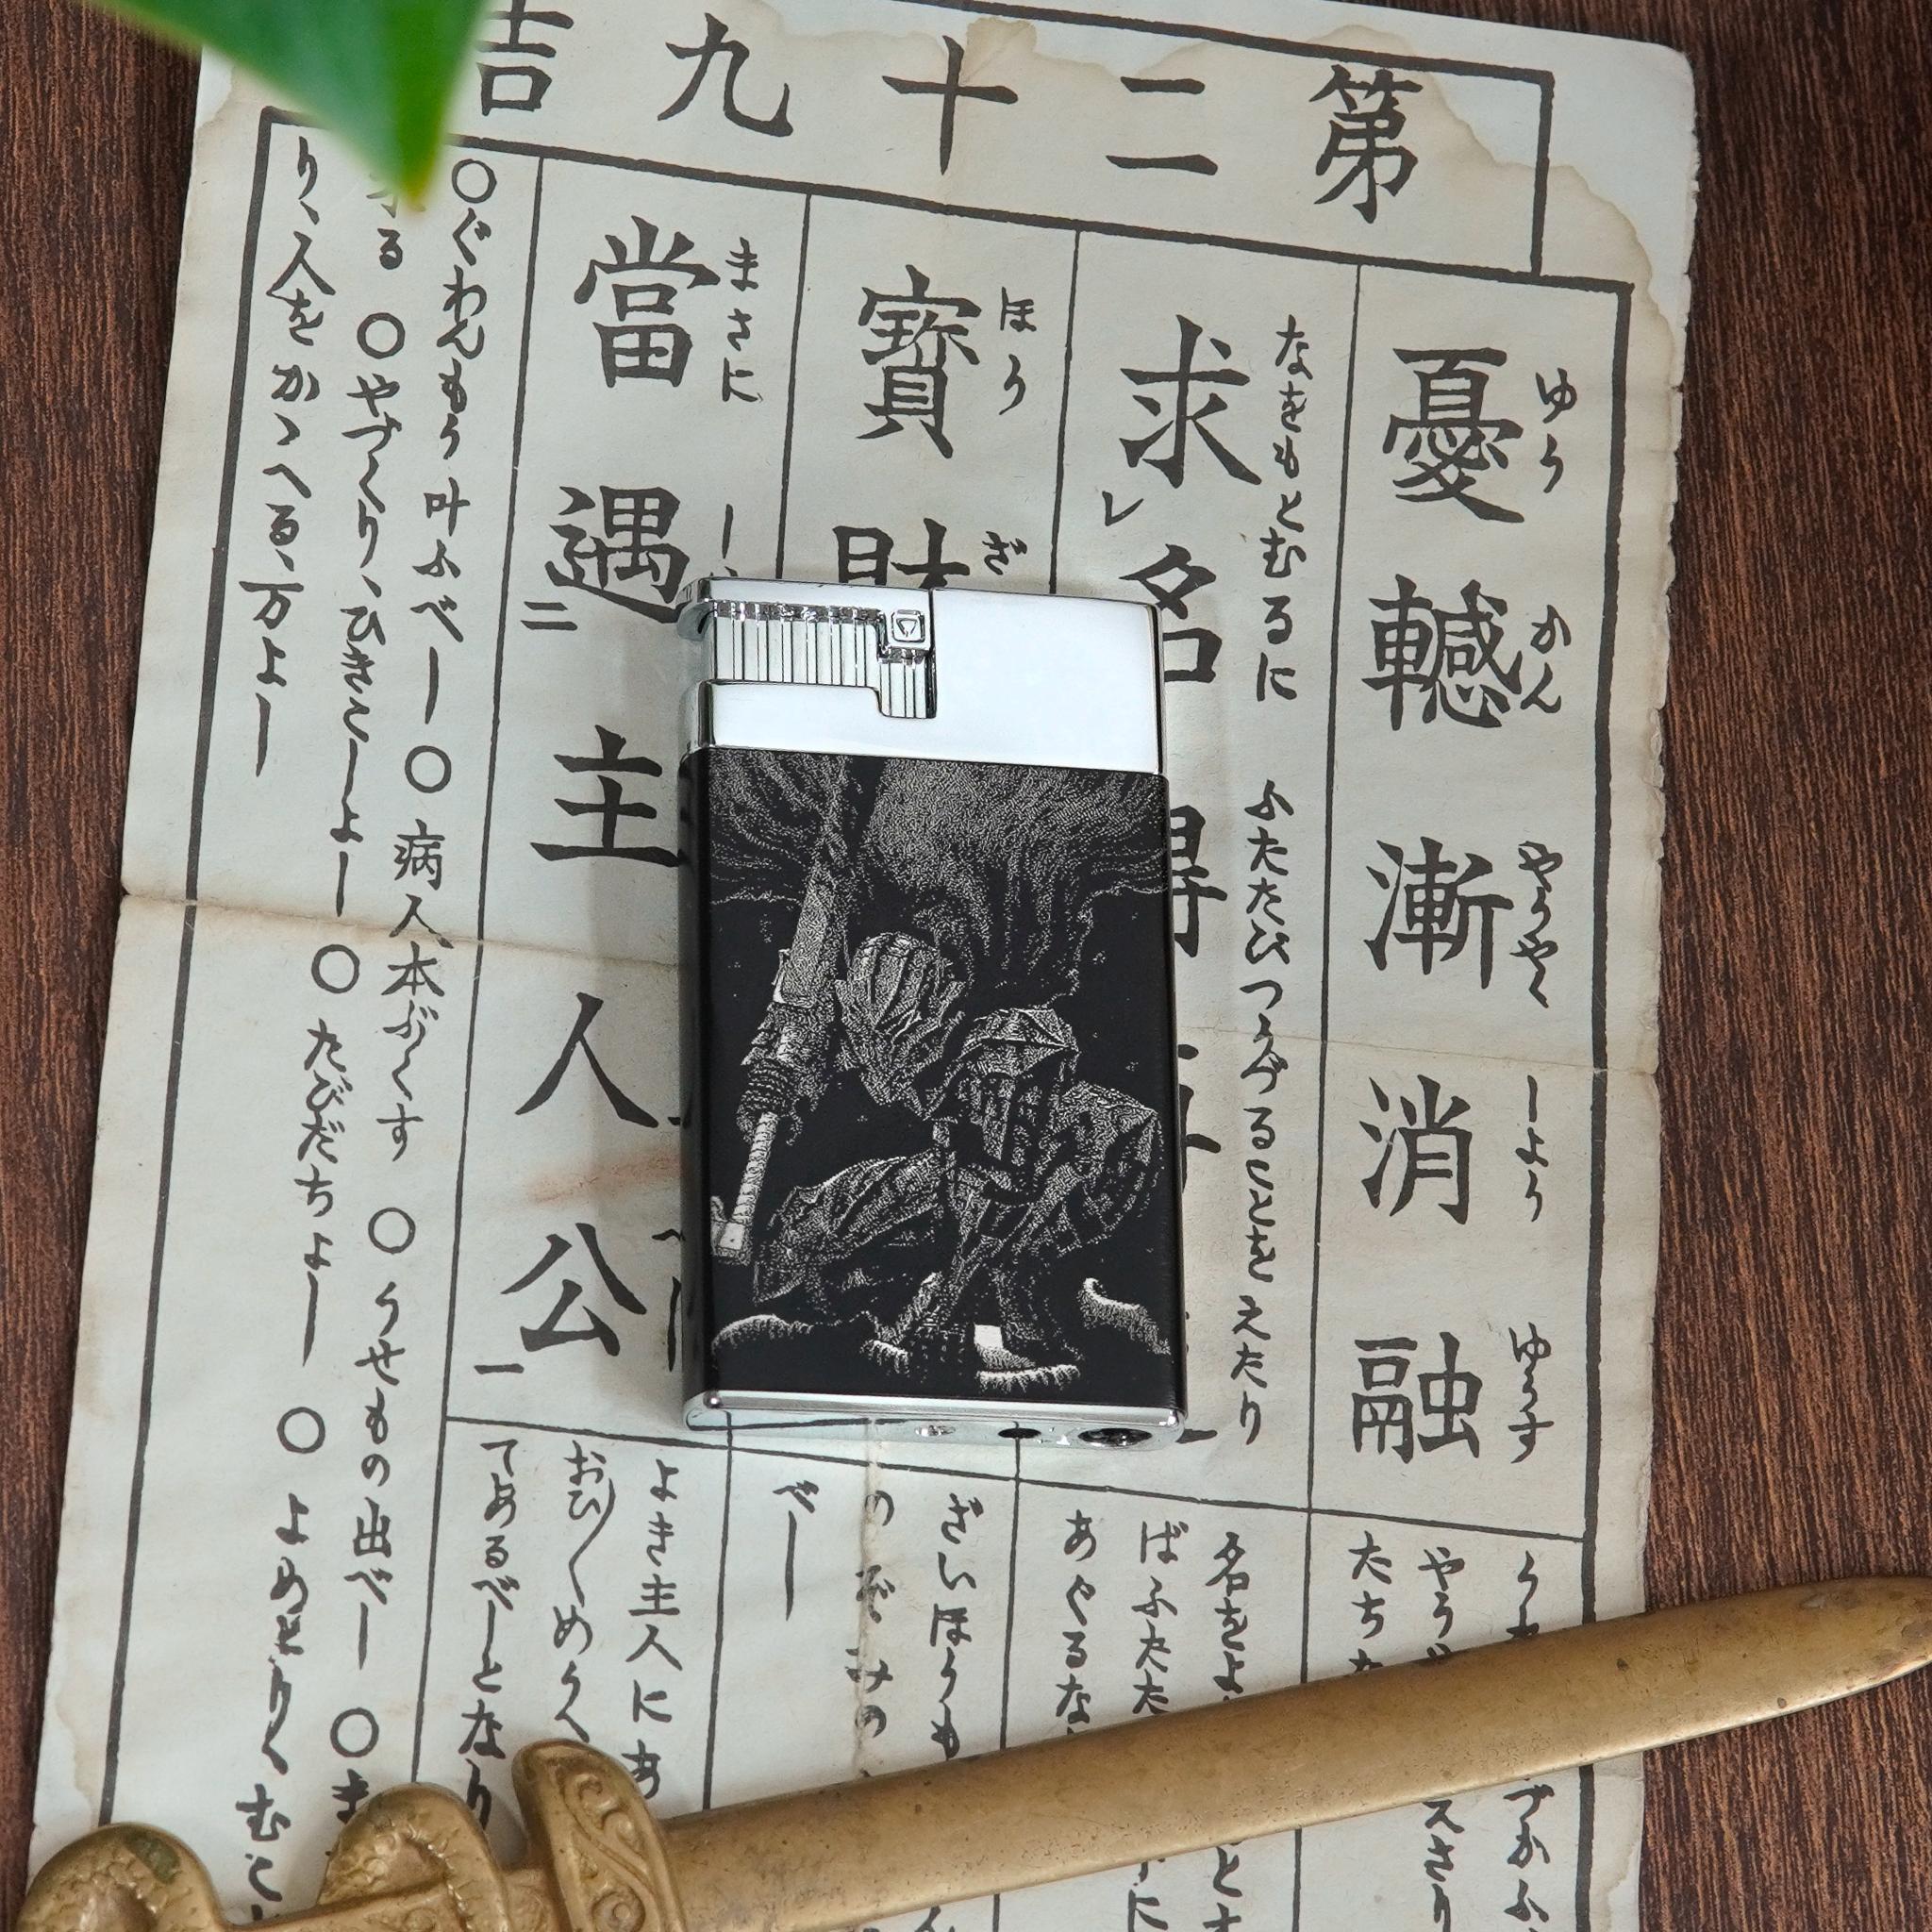 第二十九吉
憂轗漸消融
ゆう かん やうやく しよう ゆうす
求名得再
なをもとむるに ふたたびつうづることを えたり
寶財
ほう ざ
當遇主人公
まさに
二
一
レ
○ぐわんもう叶ふべし ○病人本ぶくす ○うせもの出べし ○き
る ○やづくり、ひきこしよし ○たびだちよし ○よめどりむこ
り、人をかゝへる、万よし
たち
やう
名をよ
ばふたた
あぐるな
ざいほうも
のぞみの
べし
よき主人にあ
おひ〳〵めうへ
てあるべしとなり